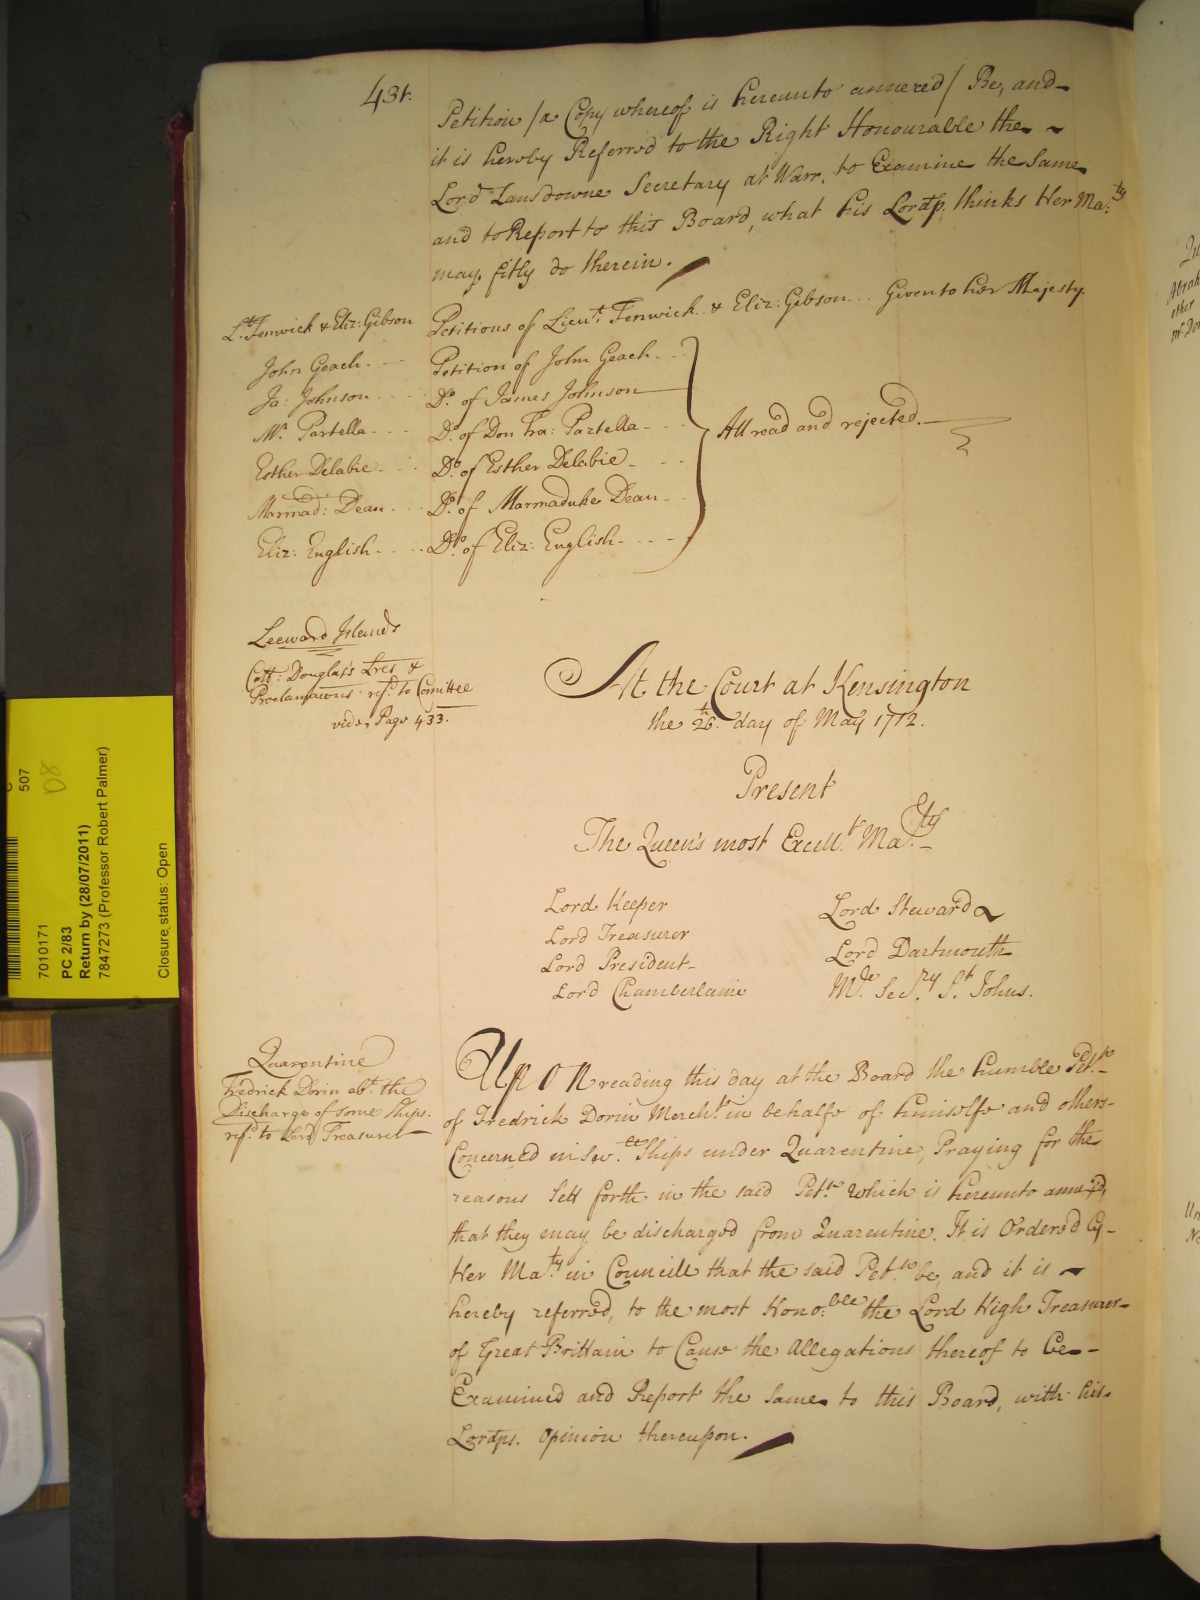 431.
Petition /a Copy whereof is hereunto annexed/ Be, and
it is hereby Referred to the Right Honourable the
Lord Lansdowne Secretary at Warr, to Examine the Same
and to Report to this Board, what his Lordp. thinks Her Ma:ty
may fitly do therein.
Lt. Fenwick & Eliz: Gibson Petitions of Lieut. Fenwick & Eliz: Gibson... Given to her Majesty.
John Geach Petition of John Geach
Ja: Johnson Do. of James Johnson
Mr. Partella Do. of Don Fra: Partella
Esther Delabie Do. of Esther Delabie
Marmad: Dean Do. of Marmaduke Dean
Eliz: English Do. of Eliz: English
All read and rejected.
Leeward Islands
Coll: Douglas's Lres &
Proclamacons refd. to Comittee
vide, Page 433.
At the Court at Kensington
the 26th. day of May 1712.
Present
The Queen's most Excellt. Maty.
Lord Keeper
Lord Treasurer
Lord President
Lord Chamberlaine
Lord Steward
Lord Dartmouth
Mr. Secry. St. Johns.
Quarentine
Fredrick Dorin abt. the
Discharge of some Ships.
refd. to Lord Treasurer
Upon reading this day at the Board the humble Petn.
of Fredrick Dorin Mercht. in behalfe of himselfe and others
Concerned in Sev.ll Ships under Quarentine, Praying for the
reasons Sett forth in the said Petn. which is hereunto annexed,
that they may be discharged from Quarentine. It is Ordered by
Her Maty. in Councill that the said Petn. be, and it is
hereby referred, to the most Hono:ble the Lord High Treasurer
of Great Brittain to Cause the Allegations thereof to be
Examined and Report the Same to this Board, with his
Lordps. Opinion thereupon.
507
D8
7010171
PC 2/83
Return by (28/07/2011)
7847273 (Professor Robert Palmer)
Closure status: Open